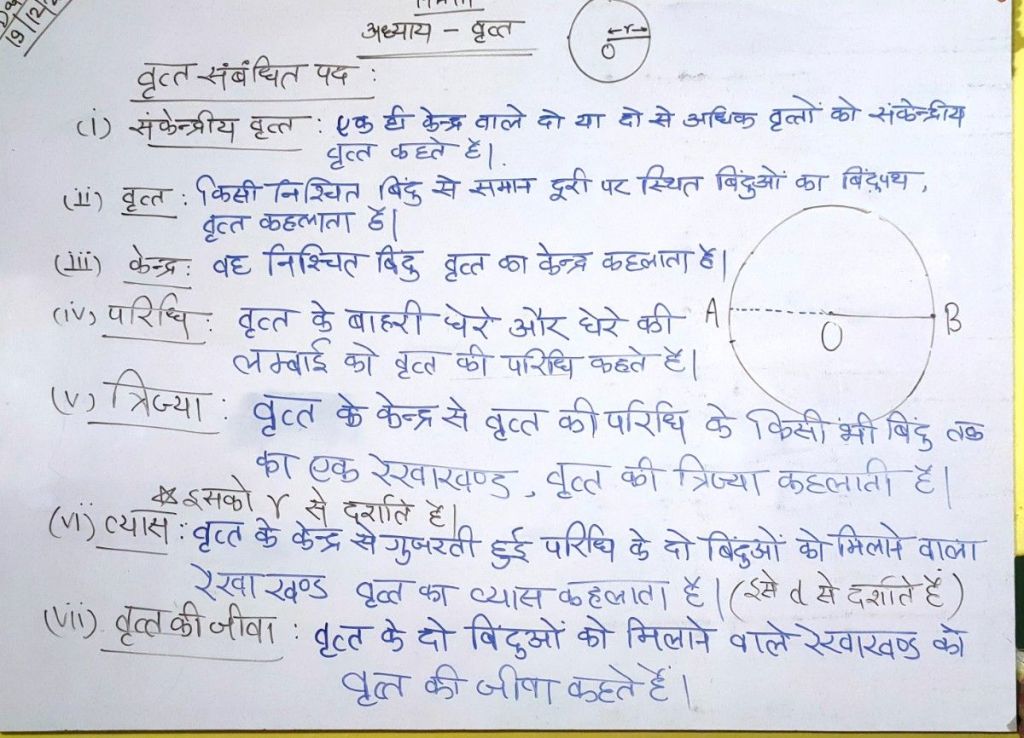 19/2/2
अध्याय - वृत्त
r
O
वृत्त संबंधित पद :
(i) संकेन्द्रीय वृत्त : एक ही केन्द्र वाले दो या दो से अधिक वृत्तों को संकेन्द्रीय
वृत्त कहते हैं।
(ii) वृत्त : किसी निश्चित बिंदु से समान दूरी पर स्थित बिंदुओं का बिंदुपथ,
वृत्त कहलाता है।
(iii) केन्द्र : वह निश्चित बिंदु वृत्त का केन्द्र कहलाता है।
(iv) परिधि : वृत्त के बाहरी घेरे और घेरे की
लम्बाई को वृत्त की परिधि कहते हैं।
A O B
(v) त्रिज्या : वृत्त के केन्द्र से वृत्त की परिधि के किसी भी बिंदु तक
का एक रेखाखण्ड, वृत्त की त्रिज्या कहलाती है।
* इसको r से दर्शाते हैं।
(vi) व्यास : वृत्त के केन्द्र से गुजरती हुई परिधि के दो बिंदुओं को मिलाने वाला
रेखाखण्ड वृत्त का व्यास कहलाता है। (इसे d से दर्शाते हैं)
(vii) वृत्त की जीवा : वृत्त के दो बिंदुओं को मिलाने वाले रेखाखण्ड को
वृत्त की जीवा कहते हैं।